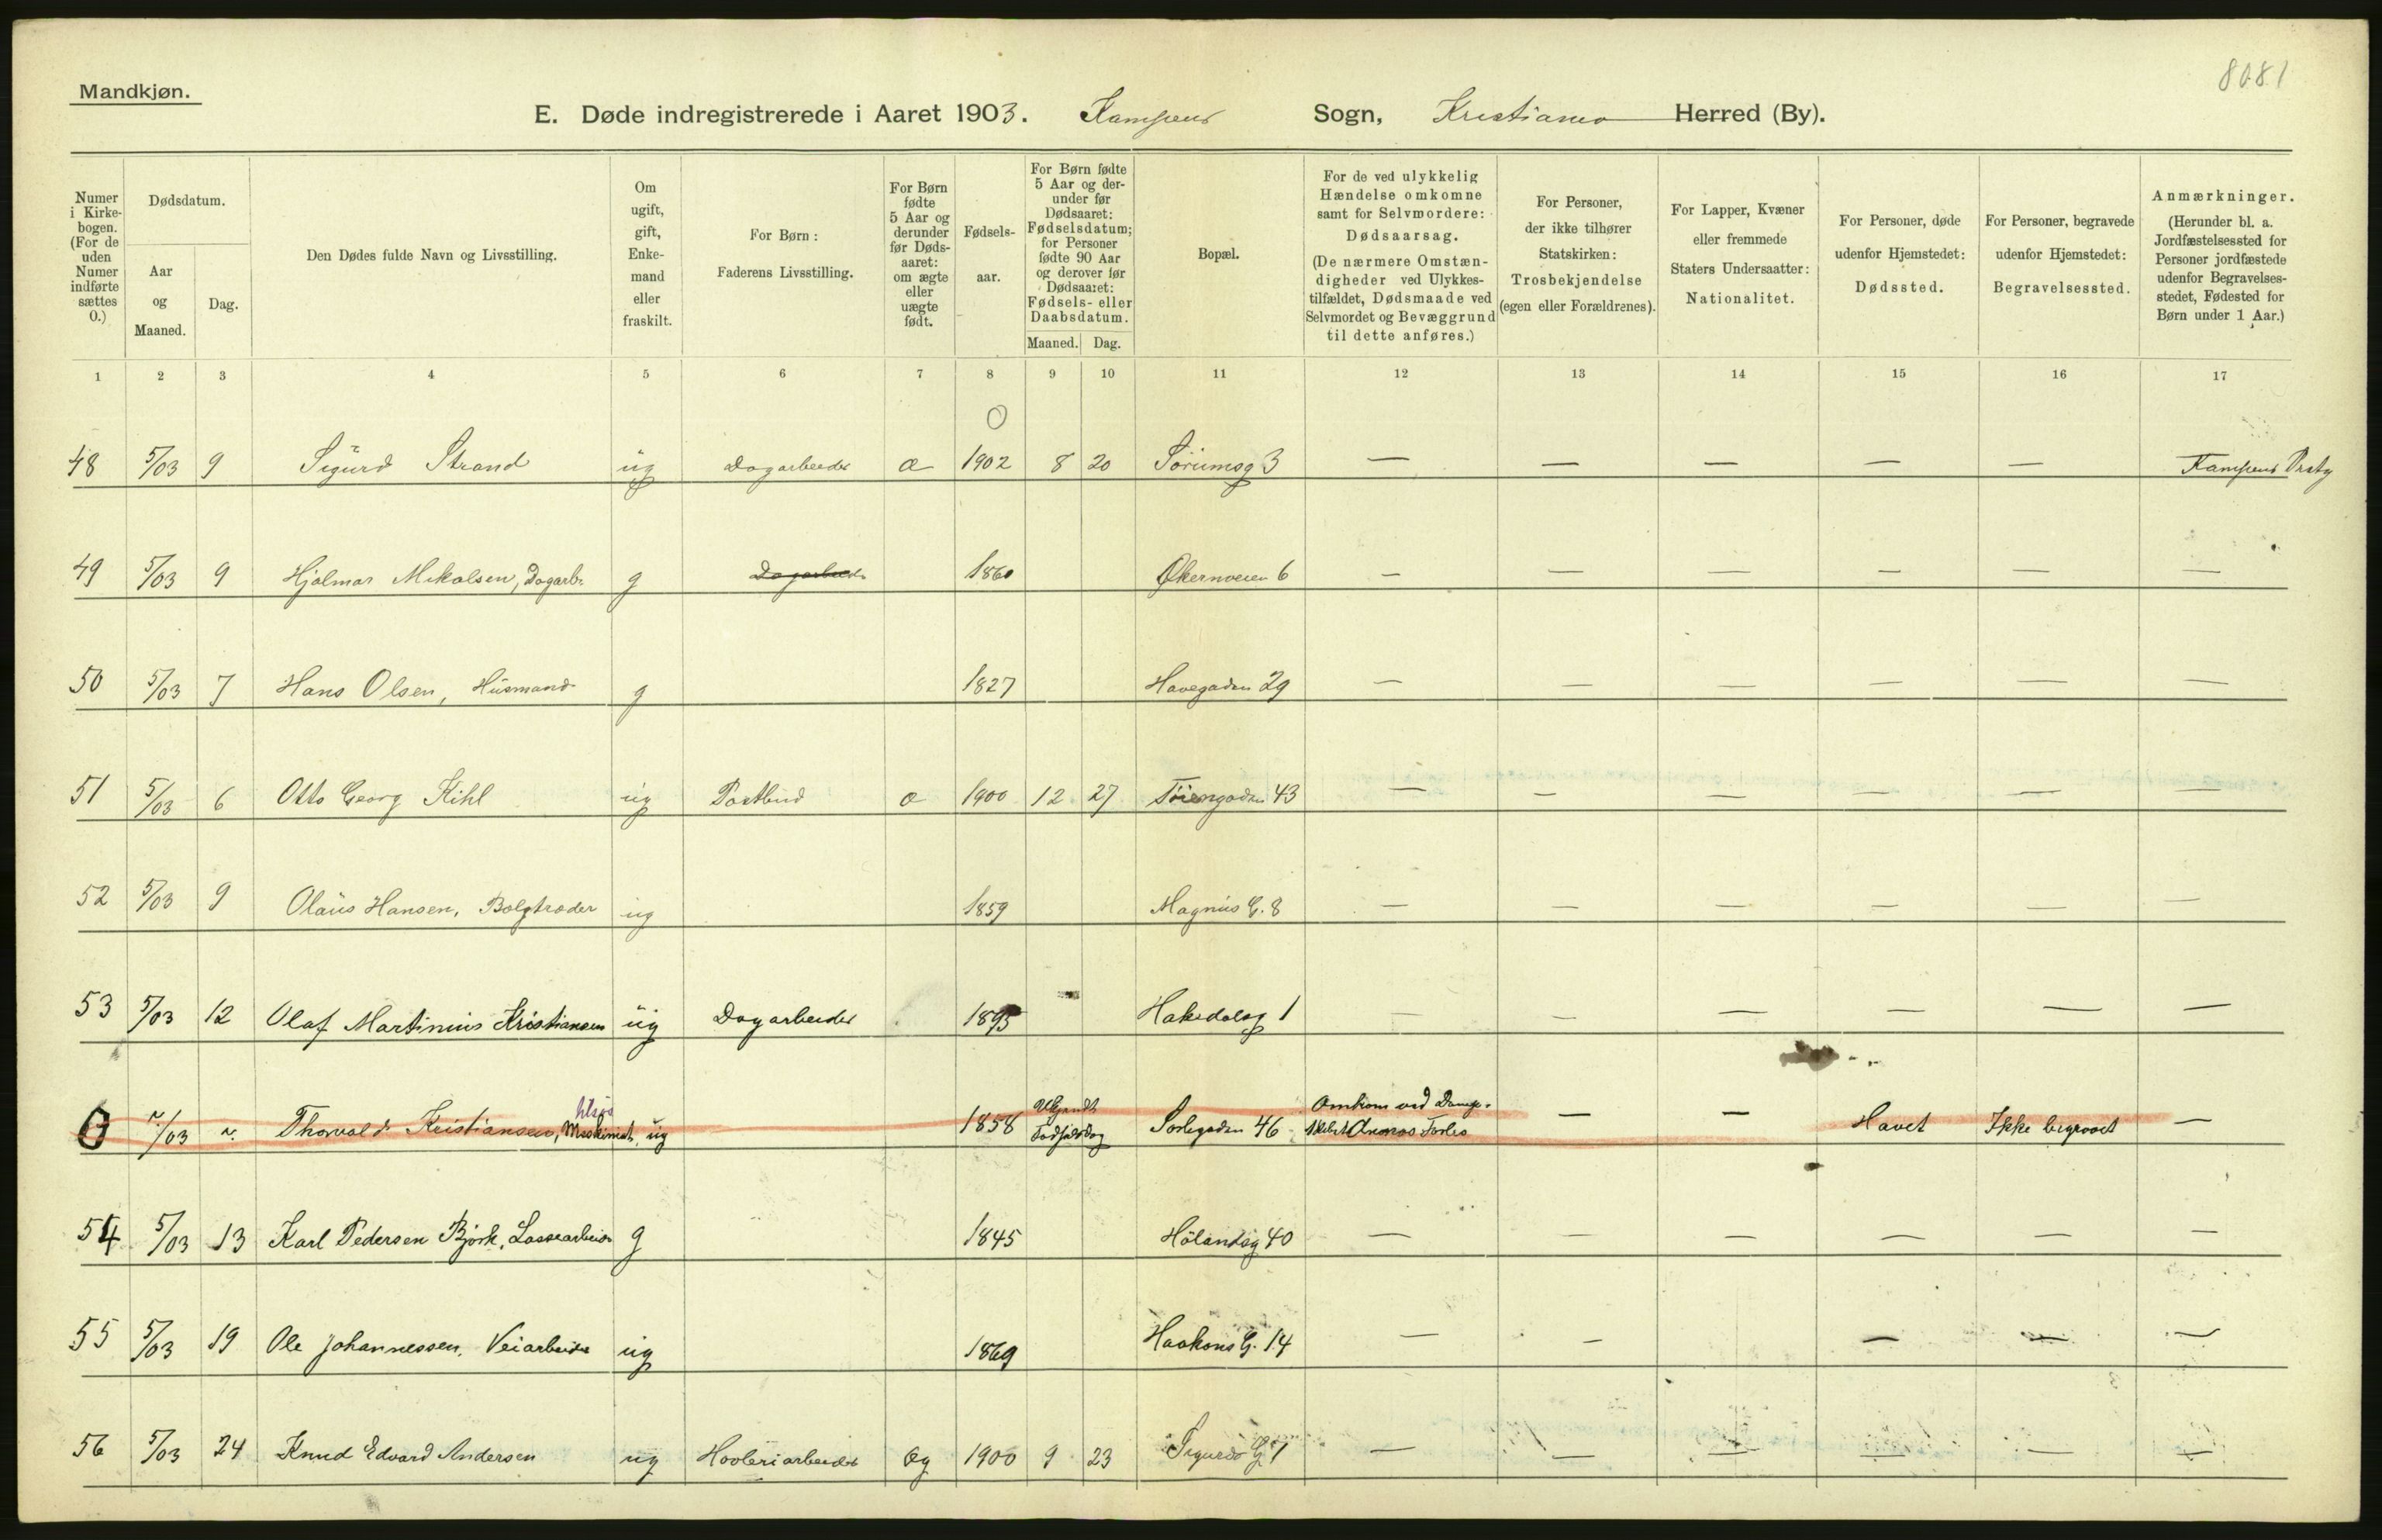 8081
Mandkjøn.
E. Døde indregistrerede i Aaret 1903. Kampens Sogn, Kristiania Herred (By).
Numer i Kirkebogen. (For de uden Numer indførte sættes 0.)
Dødsdatum.
Aar og Maaned.
Dag.
Den Dødes fulde Navn og Livsstilling.
Om ugift, gift, Enkemand eller fraskilt.
For Børn: Faderens Livsstilling.
For Børn fødte 5 Aar og derunder før Dødsaaret: om ægte eller uægte født.
Fødselsaar.
For Børn fødte 5 Aar og derunder før Dødsaaret: Fødselsdatum; for Personer fødte 90 Aar og derover før Dødsaaret: Fødsels- eller Daabsdatum.
Maaned. Dag.
Bopæl.
For de ved ulykkelig Hændelse omkomne samt for Selvmordere: Dødsaarsag. (De nærmere Omstændigheder ved Ulykkestilfældet, Dødsmaade ved Selvmordet og Bevæggrund til dette anføres.)
For Personer, der ikke tilhører Statskirken: Trosbekjendelse (egen eller Forældrenes).
For Lapper, Kvæner eller fremmede Staters Undersaatter: Nationalitet.
For Personer, døde udenfor Hjemstedet: Dødssted.
For Personer, begravede udenfor Hjemstedet: Begravelsessted.
Anmærkninger. (Herunder bl. a. Jordfæstelsessted for Personer jordfæstede udenfor Begravelsesstedet, Fødested for Børn under 1 Aar.)
1 2 3 4 5 6 7 8 9 10 11 12 13 14 15 16 17
0
48 5/03 9 Sigurd Strand ug Dagarbeider æ 1902 8 20 Sørumsg 3 — — — — — Kampens Prstg
49 5/03 9 Hjalmar Mikalsen, Dagarb. g Dagarbeider 1860 Økernveien 6 — — — — — —
50 5/03 7 Hans Olsen, Husmand g 1827 Havegaden 29 — — — — — —
51 5/03 6 Otto Georg Kihl ug Postbud æ 1900 12 27 Tøiengaden 43 — — — — — —
52 5/03 9 Olaus Hansen, Bælgtræder ug 1859 Magnus G. 8 — — — — — —
53 5/03 12 Olaf Martinius Kristiansen ug Dagarbeider 1895 Hakedalsg 1 — — — — — —
0 /03 Thorvald Kristiansen, Maskinist, ug 1858 Ubjendt Fødselsdag Sorlegaden 46 Omkom ved Damp- skibet Forlis — — Havet Ikke begravet —
54 5/03 13 Karl Pedersen Bjørk, Lossearbeider g 1845 Hølandsg 40 — — — — — —
55 5/03 19 Ole Johannessen, Veiarbeider ug 1869 Haakons G. 14 — — — — —
56 5/03 24 Knud Edvard Andersen ug Høvleriarbeider æg 1900 9 23 Sigurds G 7 — — — — — —